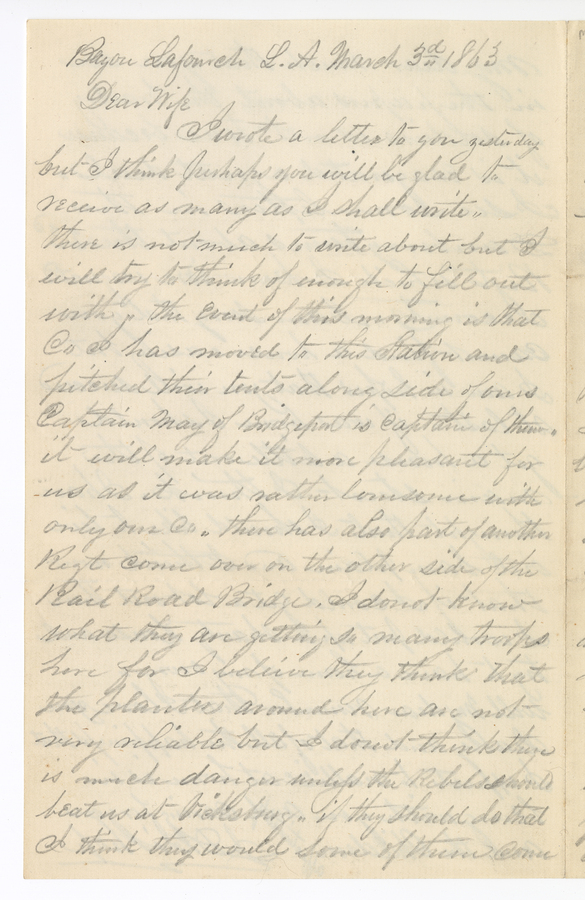 Bayou Lafourch L.A. March 3rd 1863
Dear Wife
I wrote a letter to you yesterday
but I think perhaps you will be glad to
receive as many as I shall write"
there is not much to write about but I
will try to think of enough to fill out
with" the Event of this morning is that
Co I has moved to this Station and
pitched their tents along side of ours
Captain May of Bridgeport is Captain of them"
it will make it more pleasant for
us as it was rather lonesome with
only our Co" there has also part of another
Regt come over on the other side of the
Rail Road Bridge. I donot know
what they are getting so many troops
here for I believe they think that
the planters around here are not
very reliable but I donot think there
is much danger unless the Rebels should
beat us at Vicksburg" if they should do that
I think they would some of them come